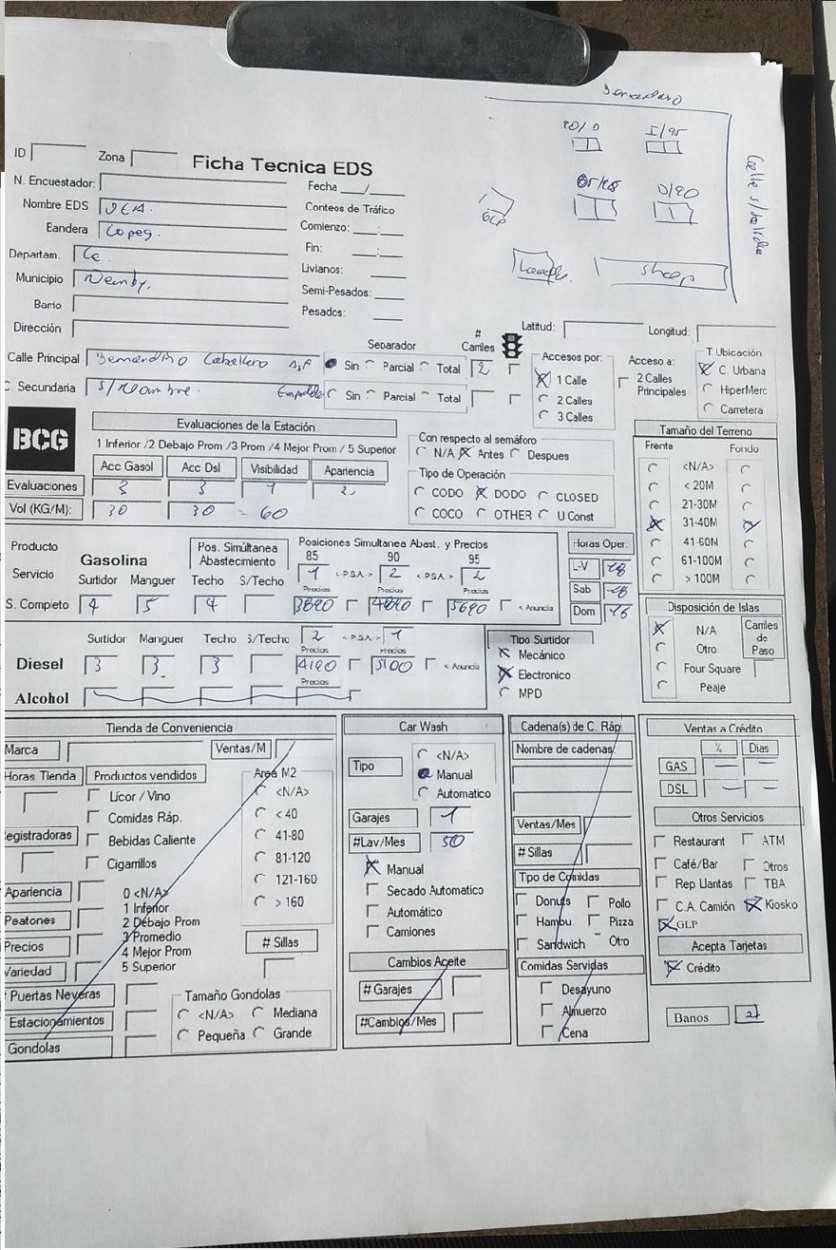 Bernardino
20/D
I/95
Calle s/salida
D/90
GLP
shop
ID
Zona
Ficha Tecnica EDS
N. Encuestador:
Fecha ___/___
Nombre EDS
Conteos de Tráfico
Bandera Copeg.
Comienzo: ___:___
Departam. Ce.
Fin: ___:___
Livianos: ___
Municipio Ñemby.
Semi-Pesados: ___
Barrio
Pesados: ___
Dirección
Latitud:
Longitud:
Separador
# Carriles
Calle Principal Bernardino Caballero
Sin Parcial Total 2
C. Secundaria S/Nombre. Empedrado
Sin Parcial Total
Accesos por:
1 Calle
2 Calles
3 Calles
Acceso a:
2 Calles Principales
T Ubicación
C. Urbana
HiperMerc
Carretera
BCG
Evaluaciones de la Estación
1 Inferior /2 Debajo Prom /3 Prom /4 Mejor Prom /5 Superior
Acc Gasol Acc Dsl Visibilidad Apariencia
Evaluaciones 3 3 1 2
Vol (KG/M): 30 30 = 60
Con respecto al semáforo
N/A Antes Despues
Tipo de Operación
CODO DODO CLOSED
COCO OTHER U Const
Tamaño del Terreno
Frente Fondo
<N/A>
< 20M
21-30M
31-40M
41-60M
61-100M
> 100M
Producto
Gasolina
Pos. Simúltanea Abastecimiento
Posiciones Simultanea Abast. y Precios
85 90 95
Servicio
Surtidor Manguer Techo S/Techo
1 <PSA> 2 <PSA> 2
Precios Precios Precios
S. Completo 4 5 4 3890 4690 5690 < Anuncia
Horas Oper.
L-V 18
Sab 18
Dom 16
Disposición de Islas
N/A
Otro
Four Square
Peaje
Carriles de Paso
Surtidor Manguer Techo S/Techo 2 <PSA> 1
Precios Precios
Diesel 3 3 3 4190 5100 < Anuncia
Precios
Alcohol
Tipo Surtidor
Mecánico
Electronico
MPD
Tienda de Conveniencia
Marca
Ventas/M
Horas Tienda
Productos vendidos
Licor / Vino
Comidas Ráp.
Bebidas Caliente
Cigarrillos
Registradoras
Area M2
<N/A>
< 40
41-80
81-120
121-160
> 160
Apariencia
Peatones
Precios
Variedad
0 <N/A>
1 Inferior
2 Debajo Prom
3 Promedio
4 Mejor Prom
5 Superior
# Sillas
# Puertas Neveras
Estacionamientos
Gondolas
Tamaño Gondolas
<N/A> Mediana
Pequeña Grande
Car Wash
Tipo
<N/A>
Manual
Automatico
Garajes 1
#Lav/Mes 50
Manual
Secado Automatico
Automático
Camiones
Cambios Aceite
# Garajes
#Cambios/Mes
Cadena(s) de C. Ráp
Nombre de cadenas
Ventas/Mes
# Sillas
Tipo de Comidas
Donuts Pollo
Hambu. Pizza
Sandwich Otro
Comidas Servidas
Desayuno
Almuerzo
Cena
Ventas a Crédito
% Dias
GAS — —
DSL — —
Otros Servicios
Restaurant ATM
Café/Bar Otros
Rep Llantas TBA
C.A. Camión Kiosko
GLP
Acepta Tarjetas
Crédito
Banos 2